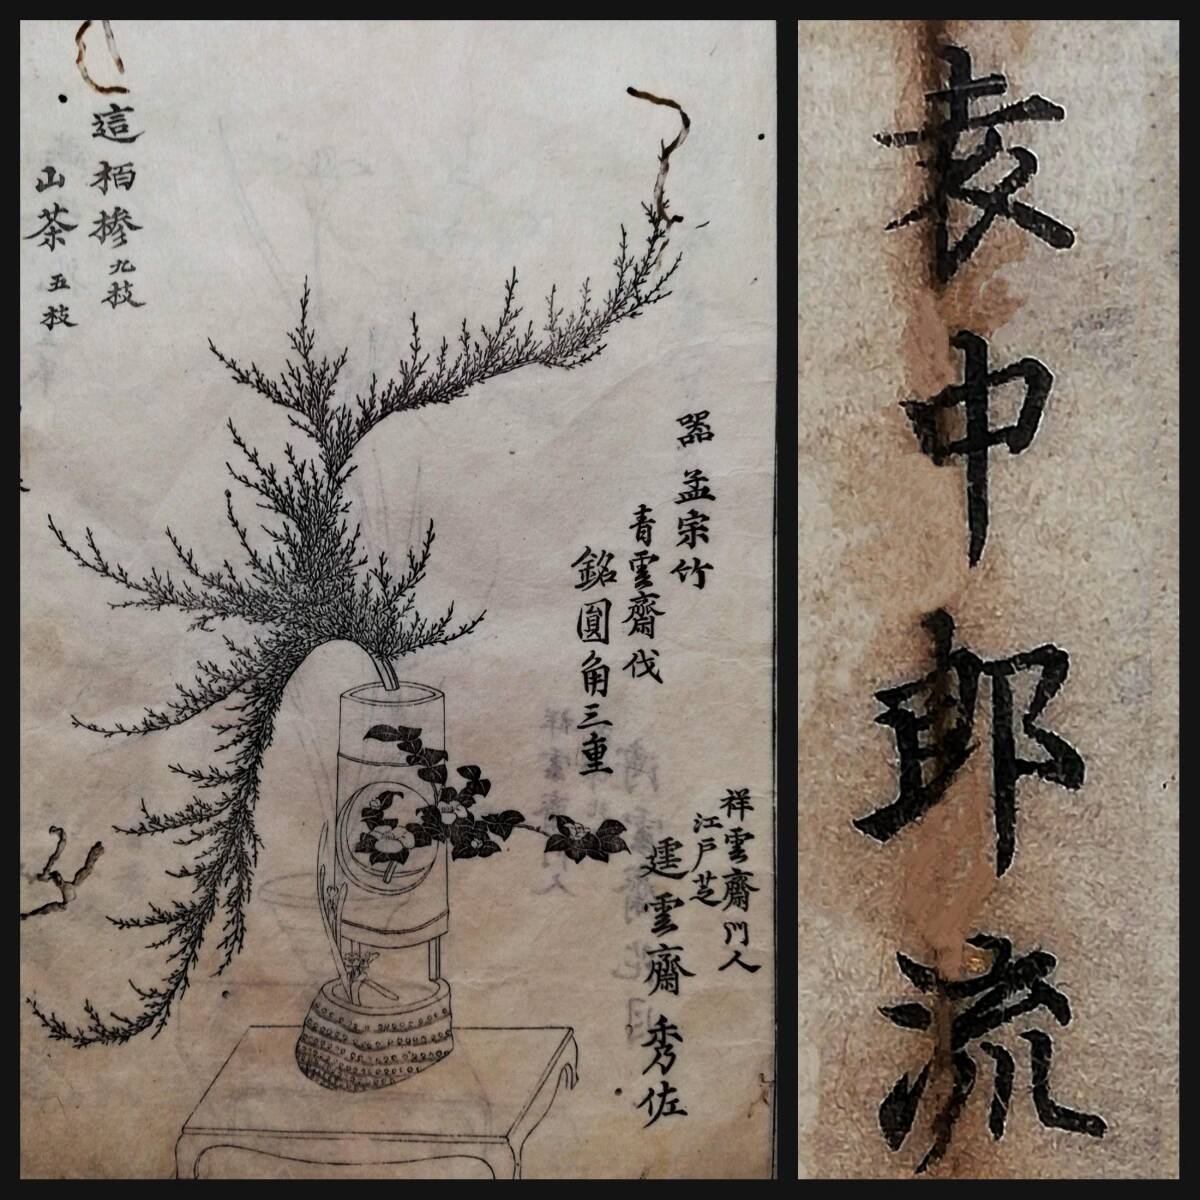 器 孟宗竹
青雲齋伐
銘圓角三重
祥雲齋門人
江戸芝
霆雲齋 秀佐
這栢槮 九枝
山茶 五枝
袁中郎流